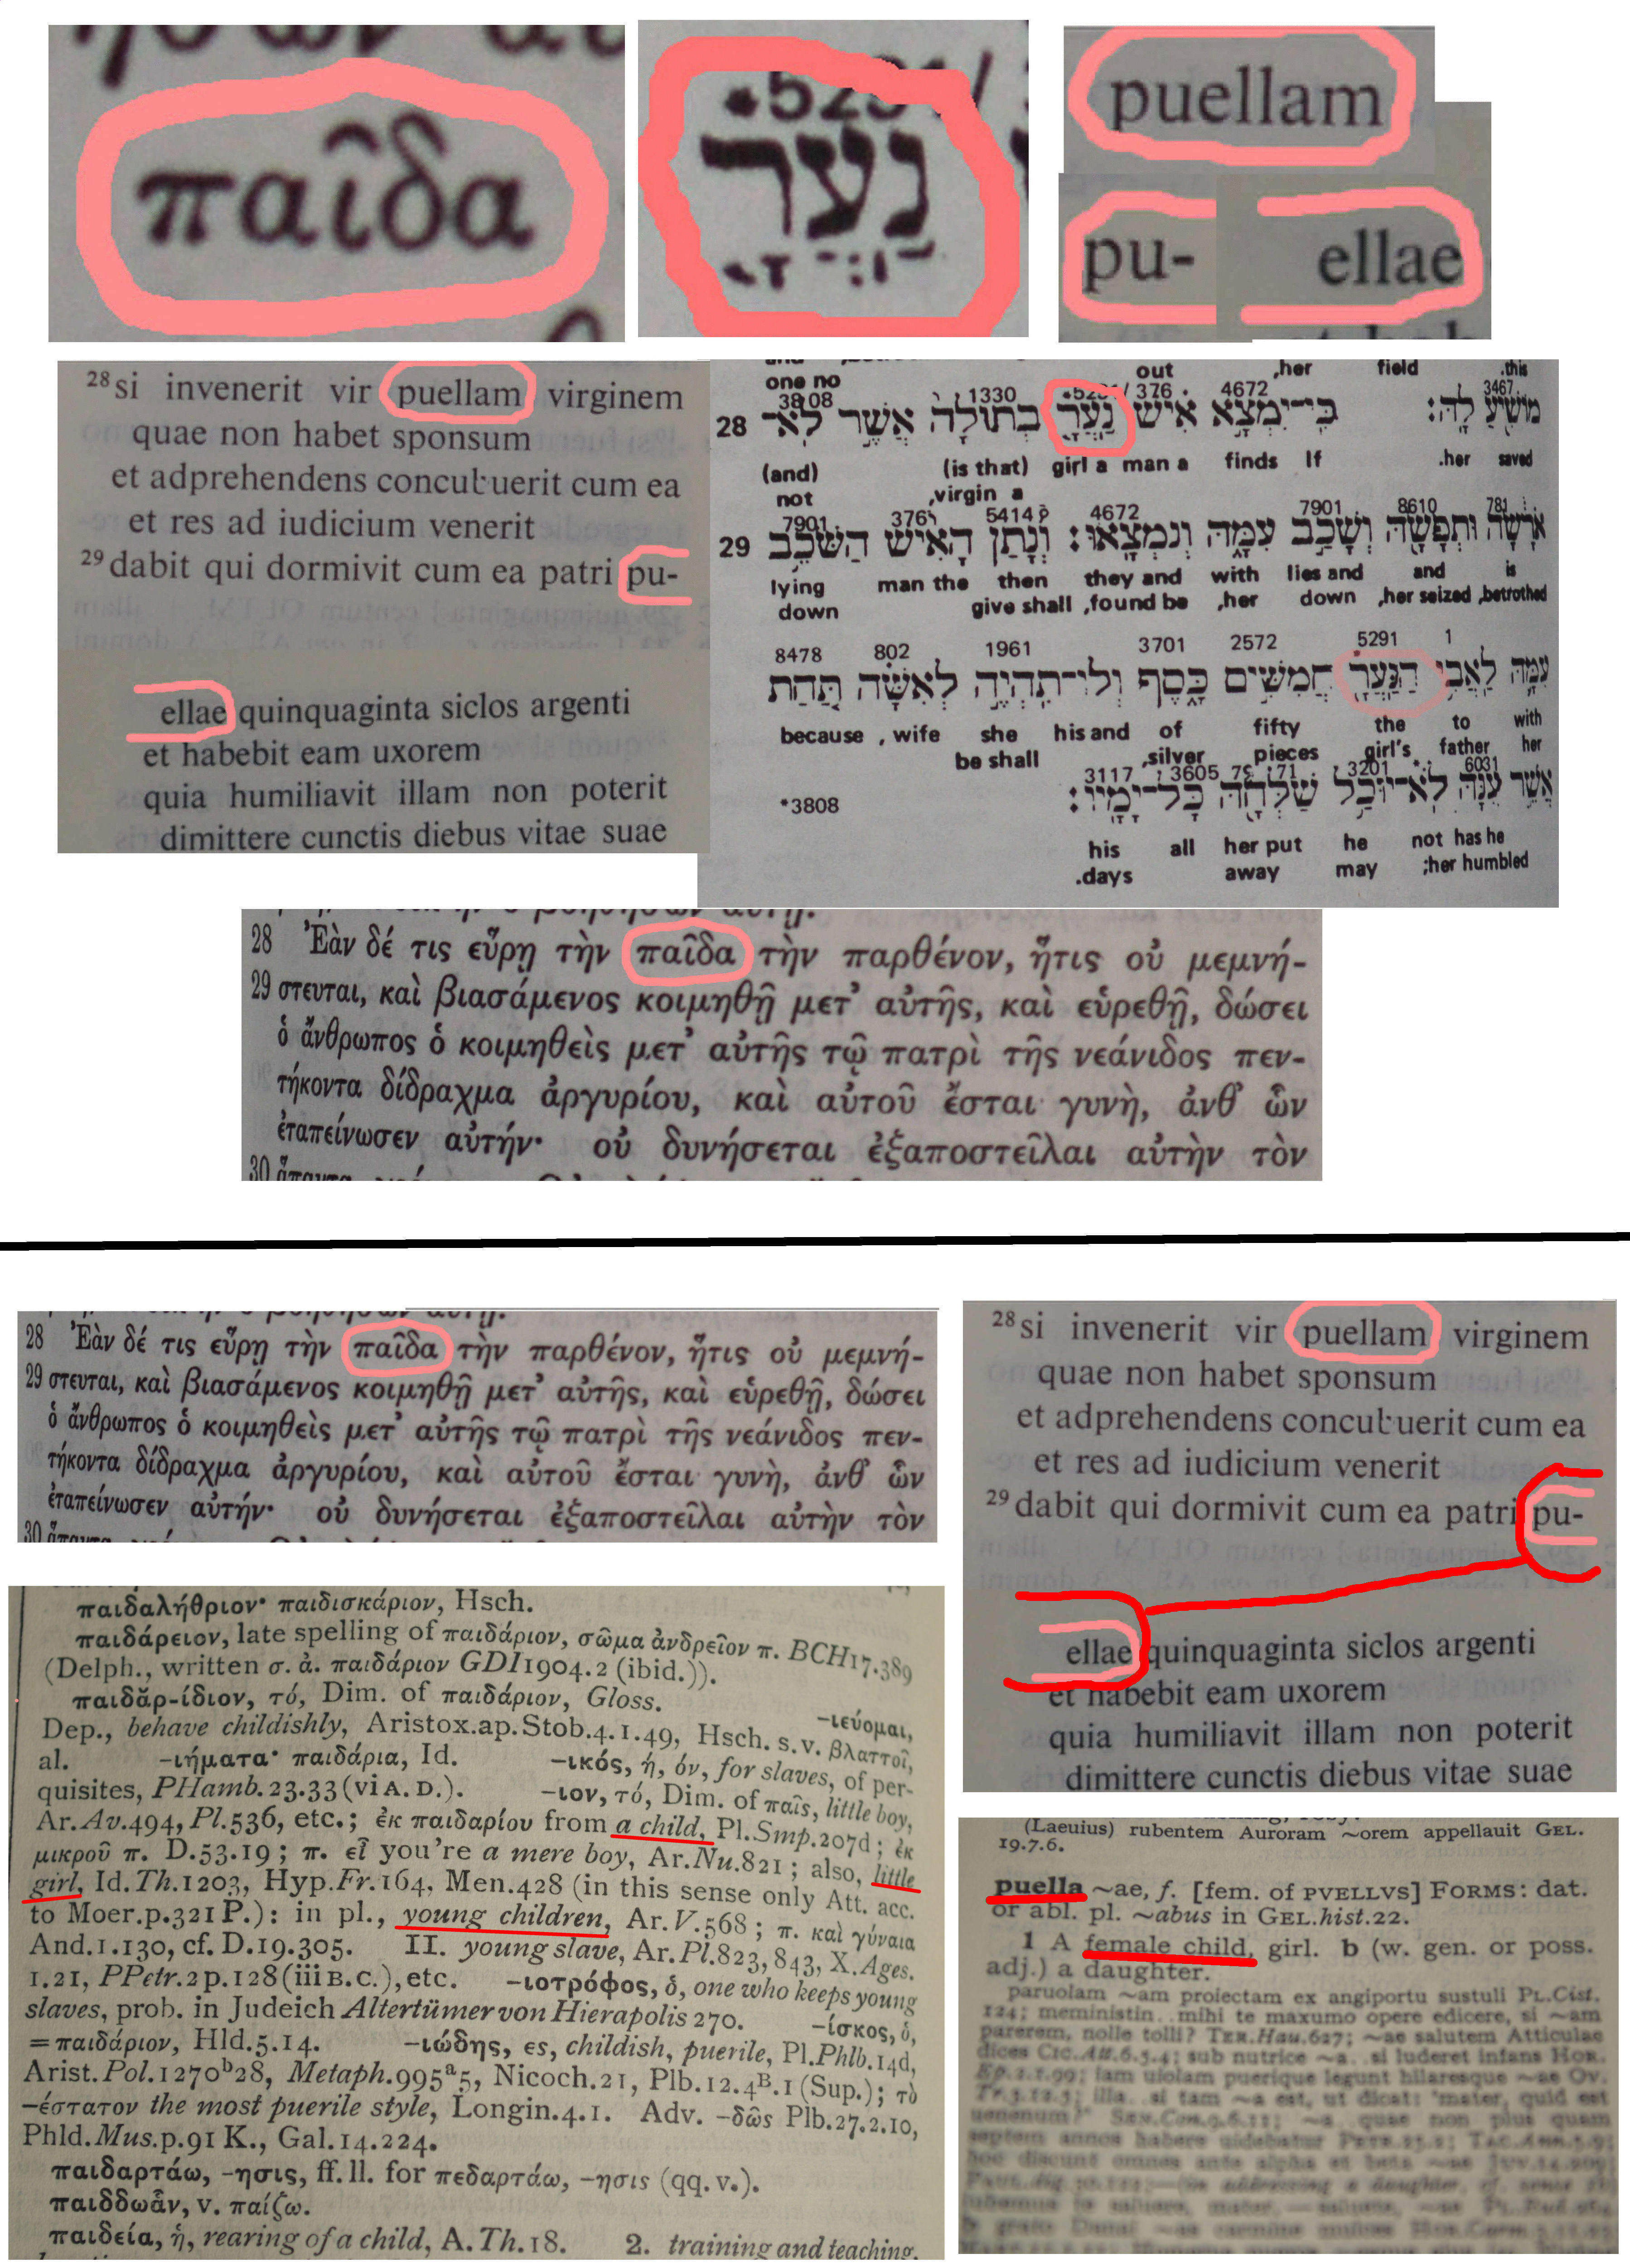 παῖδα
נַעֲרָ
puellam
pu- ellae
28 si invenerit vir puellam virginem
quae non habet sponsum
et adprehendens concubuerit cum ea
et res ad iudicium venerit
29 dabit qui dormivit cum ea patri pu-
ellae quinquaginta siclos argenti
et habebit eam uxorem
quia humiliavit illam non poterit
dimittere cunctis diebus vitae suae
one no out ,her field .this
3808 1330 376 4672 3467
28 מוֹשִׁיעַ לָהּ׃ כִּי־יִמְצָא אִישׁ נַעֲרָ בְתוּלָה אֲשֶׁר לֹא־
(and) (is that) girl a man a finds If .her saved
not ,virgin a
7901 376 5414 4672 7901 8610 781
29 אֹרָשָׂה וּתְפָשָׂהּ וְשָׁכַב עִמָּהּ וְנִמְצָאוּ׃ וְנָתַן הָאִישׁ הַשֹּׁכֵב
lying man the then they and with lies and and is
down give shall ,found be ,her down ,her seized ,betrothed
8478 802 1961 3701 2572 5291 1
עִמָּהּ לַאֲבִי הַנַּעֲרָ חֲמִשִּׁים כָּסֶף וְלוֹ־תִהְיֶה לְאִשָּׁה תַּחַת
because , wife she his and of fifty the to with
be shall ,silver pieces girl's father her
3117 3605 71 3201 6031
*3808 אֲשֶׁר עִנָּהּ לֹא־יוּכַל שַׁלְּחָהּ כָּל־יָמָיו׃
his all her put he not has he
.days away may ;her humbled
28 Ἐὰν δέ τις εὕρῃ τὴν παῖδα τὴν παρθένον, ἥτις οὐ μεμνή-
29 στευται, καὶ βιασάμενος κοιμηθῇ μετ᾽ αὐτῆς, καὶ εὑρεθῇ, δώσει
ὁ ἄνθρωπος ὁ κοιμηθεὶς μετ᾽ αὐτῆς τῷ πατρὶ τῆς νεάνιδος πεν-
τήκοντα δίδραχμα ἀργυρίου, καὶ αὐτοῦ ἔσται γυνὴ, ἀνθ᾽ ὧν
ἐταπείνωσεν αὐτήν· οὐ δυνήσεται ἐξαποστεῖλαι αὐτὴν τὸν
30
28 Ἐὰν δέ τις εὕρῃ τὴν παῖδα τὴν παρθένον, ἥτις οὐ μεμνή-
29 στευται, καὶ βιασάμενος κοιμηθῇ μετ᾽ αὐτῆς, καὶ εὑρεθῇ, δώσει
ὁ ἄνθρωπος ὁ κοιμηθεὶς μετ᾽ αὐτῆς τῷ πατρὶ τῆς νεάνιδος πεν-
τήκοντα δίδραχμα ἀργυρίου, καὶ αὐτοῦ ἔσται γυνὴ, ἀνθ᾽ ὧν
ἐταπείνωσεν αὐτήν· οὐ δυνήσεται ἐξαποστεῖλαι αὐτὴν τὸν
30
28 si invenerit vir puellam virginem
quae non habet sponsum
et adprehendens concubuerit cum ea
et res ad iudicium venerit
29 dabit qui dormivit cum ea patri pu-
ellae quinquaginta siclos argenti
et habebit eam uxorem
quia humiliavit illam non poterit
dimittere cunctis diebus vitae suae
παιδαλήθριον· παιδισκάριον, Hsch.
παιδάρειον, late spelling of παιδάριον, σῶμα ἀνδρεῖον π. BCH17.389
(Delph., written σ. ἀ. παιδάριον GDI1904.2 (ibid.)).
παιδᾰρ-ίδιον, τό, Dim. of παιδάριον, Gloss. -ιεύομαι,
Dep., behave childishly, Aristox.ap.Stob.4.1.49, Hsch. s.v. βλαττοῖ,
al. -ιήματα· παιδάρια, Id. -ικός, ή, όν, for slaves, of per-
quisites, PHamb.23.33 (vi A. D.). -ιον, τό, Dim. of παῖς, little boy,
Ar.Av.494, Pl.536, etc.; ἐκ παιδαρίου from a child, Pl.Smp.207d; ἐκ
μικροῦ π. D.53.19; π. εἶ you're a mere boy, Ar.Nu.821; also, little
girl, Id.Th.1203, Hyp.Fr.164, Men.428 (in this sense only Att. acc.
to Moer.p.321 P.): in pl., young children, Ar.V.568; π. καὶ γύναια
And.1.130, cf. D.19.305. II. young slave, Ar.Pl.823, 843, X.Ages.
1.21, PPetr.2p.128 (iii B.C.), etc. -ιοτρόφος, ὁ, one who keeps young
slaves, prob. in Judeich Altertümer von Hierapolis 270. -ίσκος, ὁ,
= παιδάριον, Hld.5.14. -ιώδης, ες, childish, puerile, Pl.Phlb.14d,
Arist.Pol.1270b28, Metaph.995a5, Nicoch.21, Plb.12.4B.1 (Sup.); τὸ
-έστατον the most puerile style, Longin.4.1. Adv. -δῶς Plb.27.2.10,
Phld.Mus.p.91 K., Gal.14.224.
παιδαρτάω, -ησις, ff. ll. for πεδαρτάω, -ησις (qq. v.).
παιδδωἇν, v. παίζω.
παιδεία, ἡ, rearing of a child, A.Th.18. 2. training and teaching,
(Laeuius) rubentem Auroram ~orem appellauit GEL.
19.7.6.
puella ~ae, f. [fem. of PVELLVS] FORMS: dat.
or abl. pl. ~abus in GEL.hist.22.
1 A female child, girl. b (w. gen. or poss.
adj.) a daughter.
paruolam ~am proiectam ex angiportu sustuli PL.Cist.
124; meministin.. mihi te maxumo opere edicere, si ~am
parerem, nolle tolli? TER.Hau.627; ~ae salutem Atticulae
dices CIC.Att.6.5.4; sub nutrice ~a.. si luderet infans HOR.